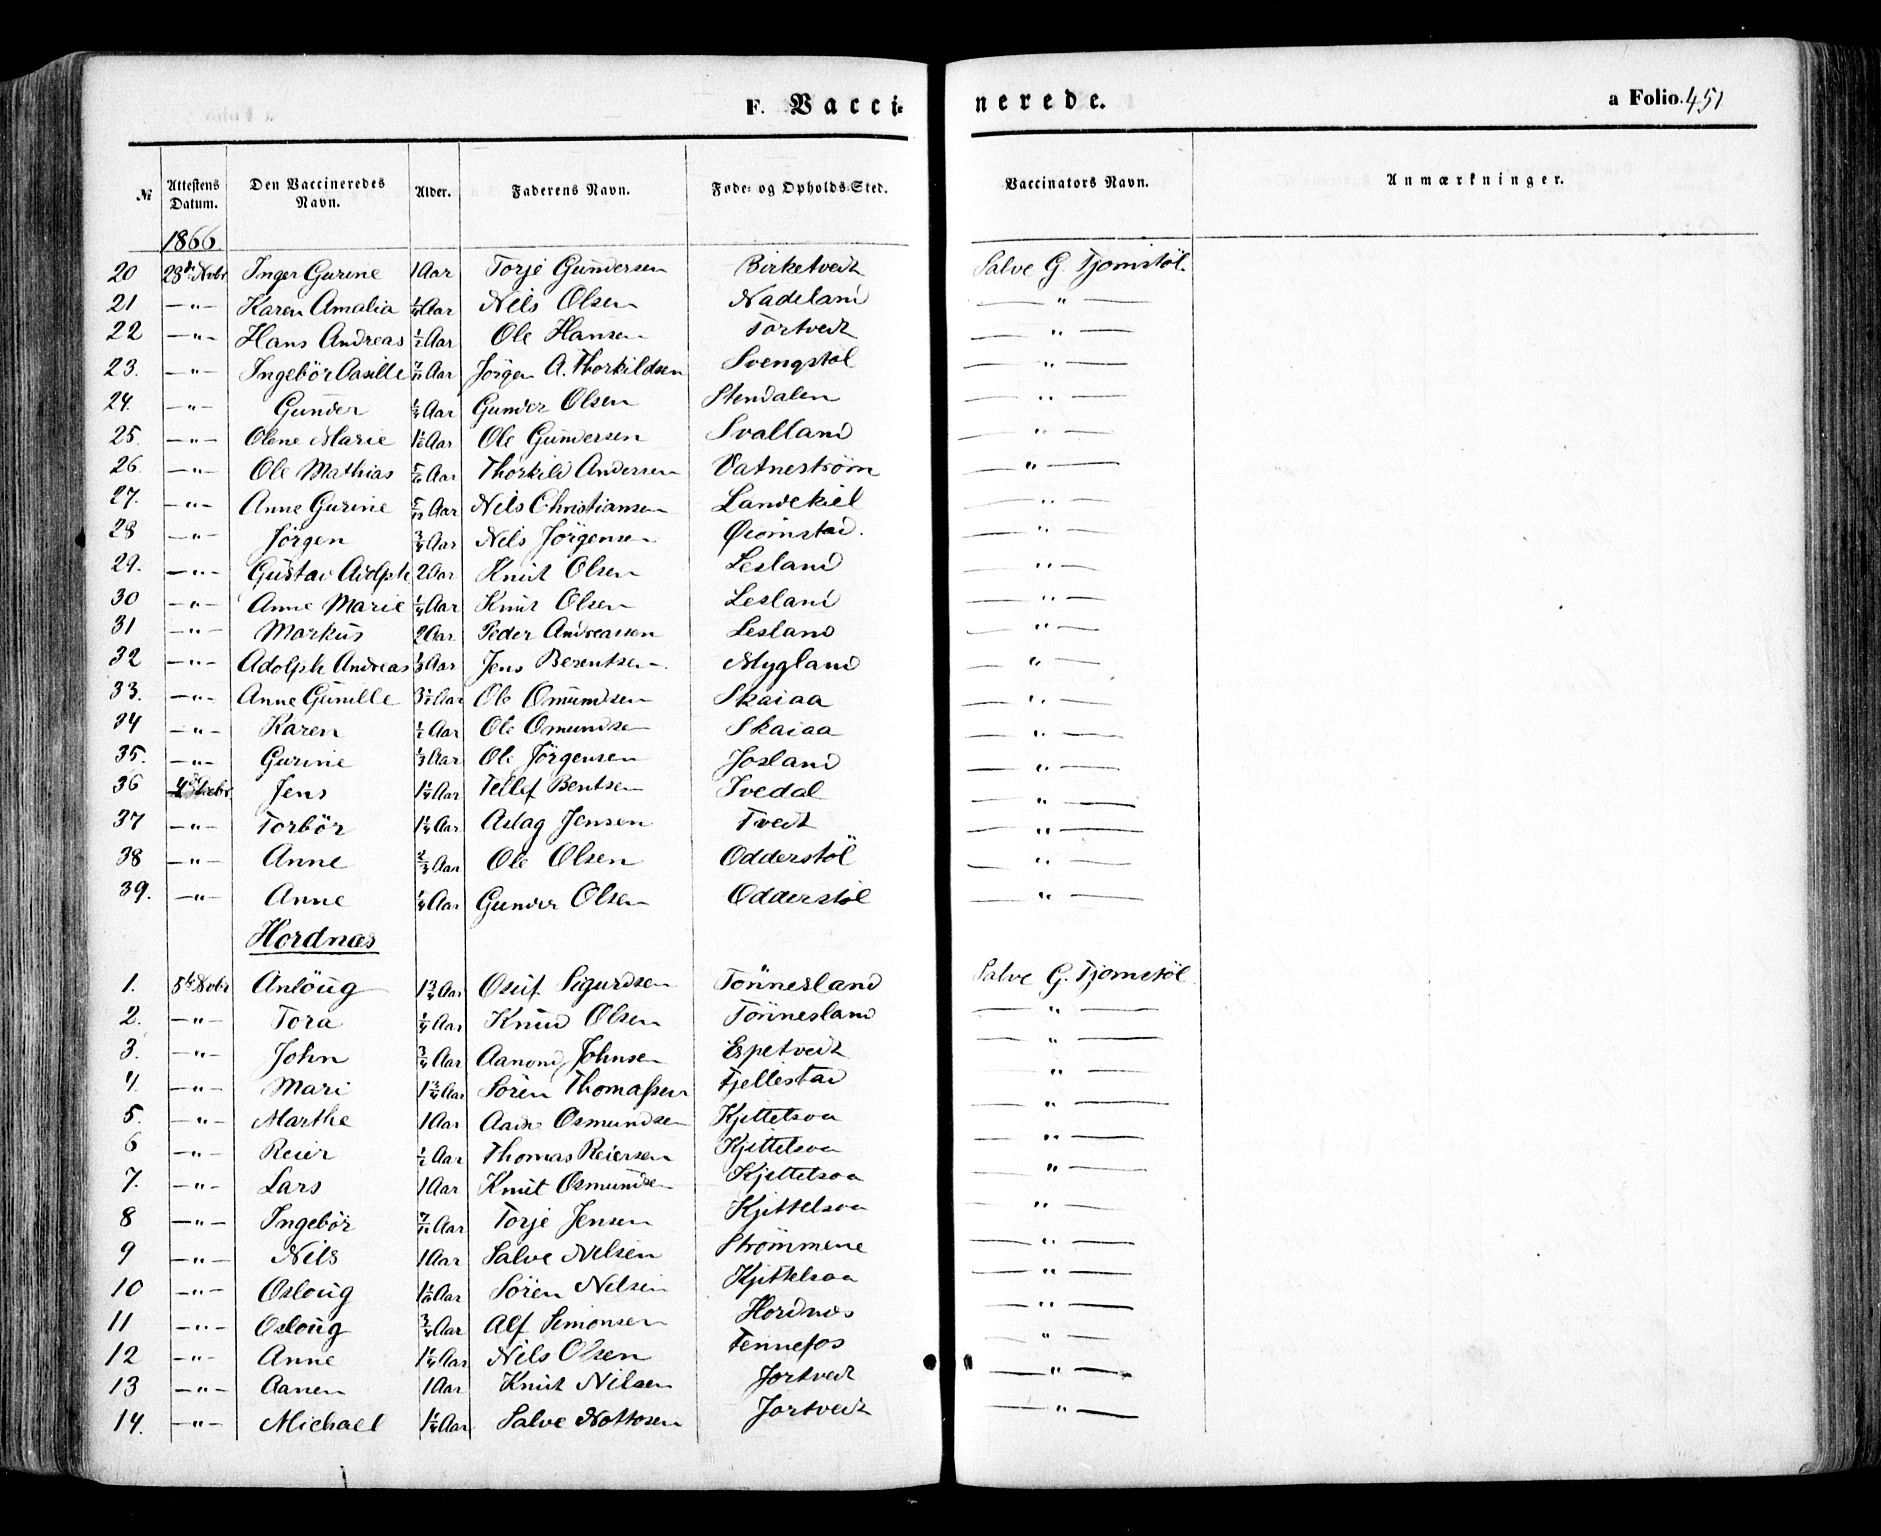 F. Vaccinerede. a Folio. 451
№ Attestens Datum. Den Vaccineredes Navn. Alder. Faderens Navn. Føde- og Opholds-Sted. Vaccinators Navn. Anmærkninger.
1866.
20 23de Novbr Inger Gurine 1 Aar Torje Gundersen Birketvedt Salve G. Tjomstøl.
21 —"— Karen Amalia ¼ Aar Nils Olsen Nadeland —"—
22 —"— Hans Andreas ½ Aar Ole Hansen Tortvedt —"—
23. —"— Ingebör Aasille Aar Jörgen A. Thorkildsen Svengstöl —"—
24. —"— Gunder ¼ Aar Gunder Olsen Stendalen —"—
25. —"— Olene Marie Aar Ole Gundersen Svalland —"—
26. —"— Ole Mathias 5/6 Aar Thorkild Andersen Vatneström —"—
27. —"— Anne Gurine 5/12 Aar Nils Christiansen Landekiel —"—
28 —"— Jörgen ¾ Aar Nils Jörgensen Øiomstad. —"—
29. —"— Gustav Adolph 2 Aar Knut Olsen Lesland —"—
30 —"— Anne Marie ¼ Aar Knut Olsen Lesland —"—
31 —"— Markus 2 Aar Peder Andreassen Lesland —"—
32 —"— Adolph Andreas ⅓ Aar Jens Berentsen Mygland —"—
33. —"— Anne Gunille 3½ Aar Ole Omundsen Skaiaa —"—
34 —"— Karen ½ Aar Ole Omundsen Skaiaa —"—
35. —"— Gurine ⅓ Aar Ole Jörgensen Josland —"—
36 Decbr. Jens 1¼ Aar Tellef Bentsen Ivedal —"—
37 —"— Torbör 1¼ Aar Aslag Jensen Tvedt —"—
38 —"— Anne ⅔ Aar Ole Olsen Odderstöl —"—
39. —"— Anne ¼ Aar Gunder Olsen Odderstöl —"—
Hordnæs
1. 5te Novbr Anlöug 1¾ Aar Osuf Sigurdsen Tönnesland Salve G. Tjomstöl
2. —"— Tora ¼ Aar Knud Olsen Tönnesland —"—
3. —"— John ¾ Aar Aanond Johnsen Espetvedt —"—
4. —"— Mari 1¾ Aar Sören Thomassen Fjellestad —"—
5. —"— Marthe 1 Aar Osmundsen Kjettelsaa —"—
6 —"— Reier ½ Aar Thomas Reiersen Kjittelsaa —"—
7. —"— Lars 1 Aar Knut Osmundsen Kjettelsaa —"—
8 —"— Ingebör Aar Torje Jensen Kjittelsaa —"—
9 —"— Nils 1 Aar Salve Nilsen Strømmene —"—
10 —"— Osloug Aar Sören Nilsen Kjittelsaa —"—
11 —"— Osloug ¾ Aar Alf Simonsen Hordnæs —"—
12 —"— Anne 1¼ Aar Nils Olsen Fennefos —"—
13 —"— Aanen 1 Aar Knut Nilsen Jortvedt —"—
14. —"— Michael 1¼ Aar Salve Nottosen Jortvedt —"—